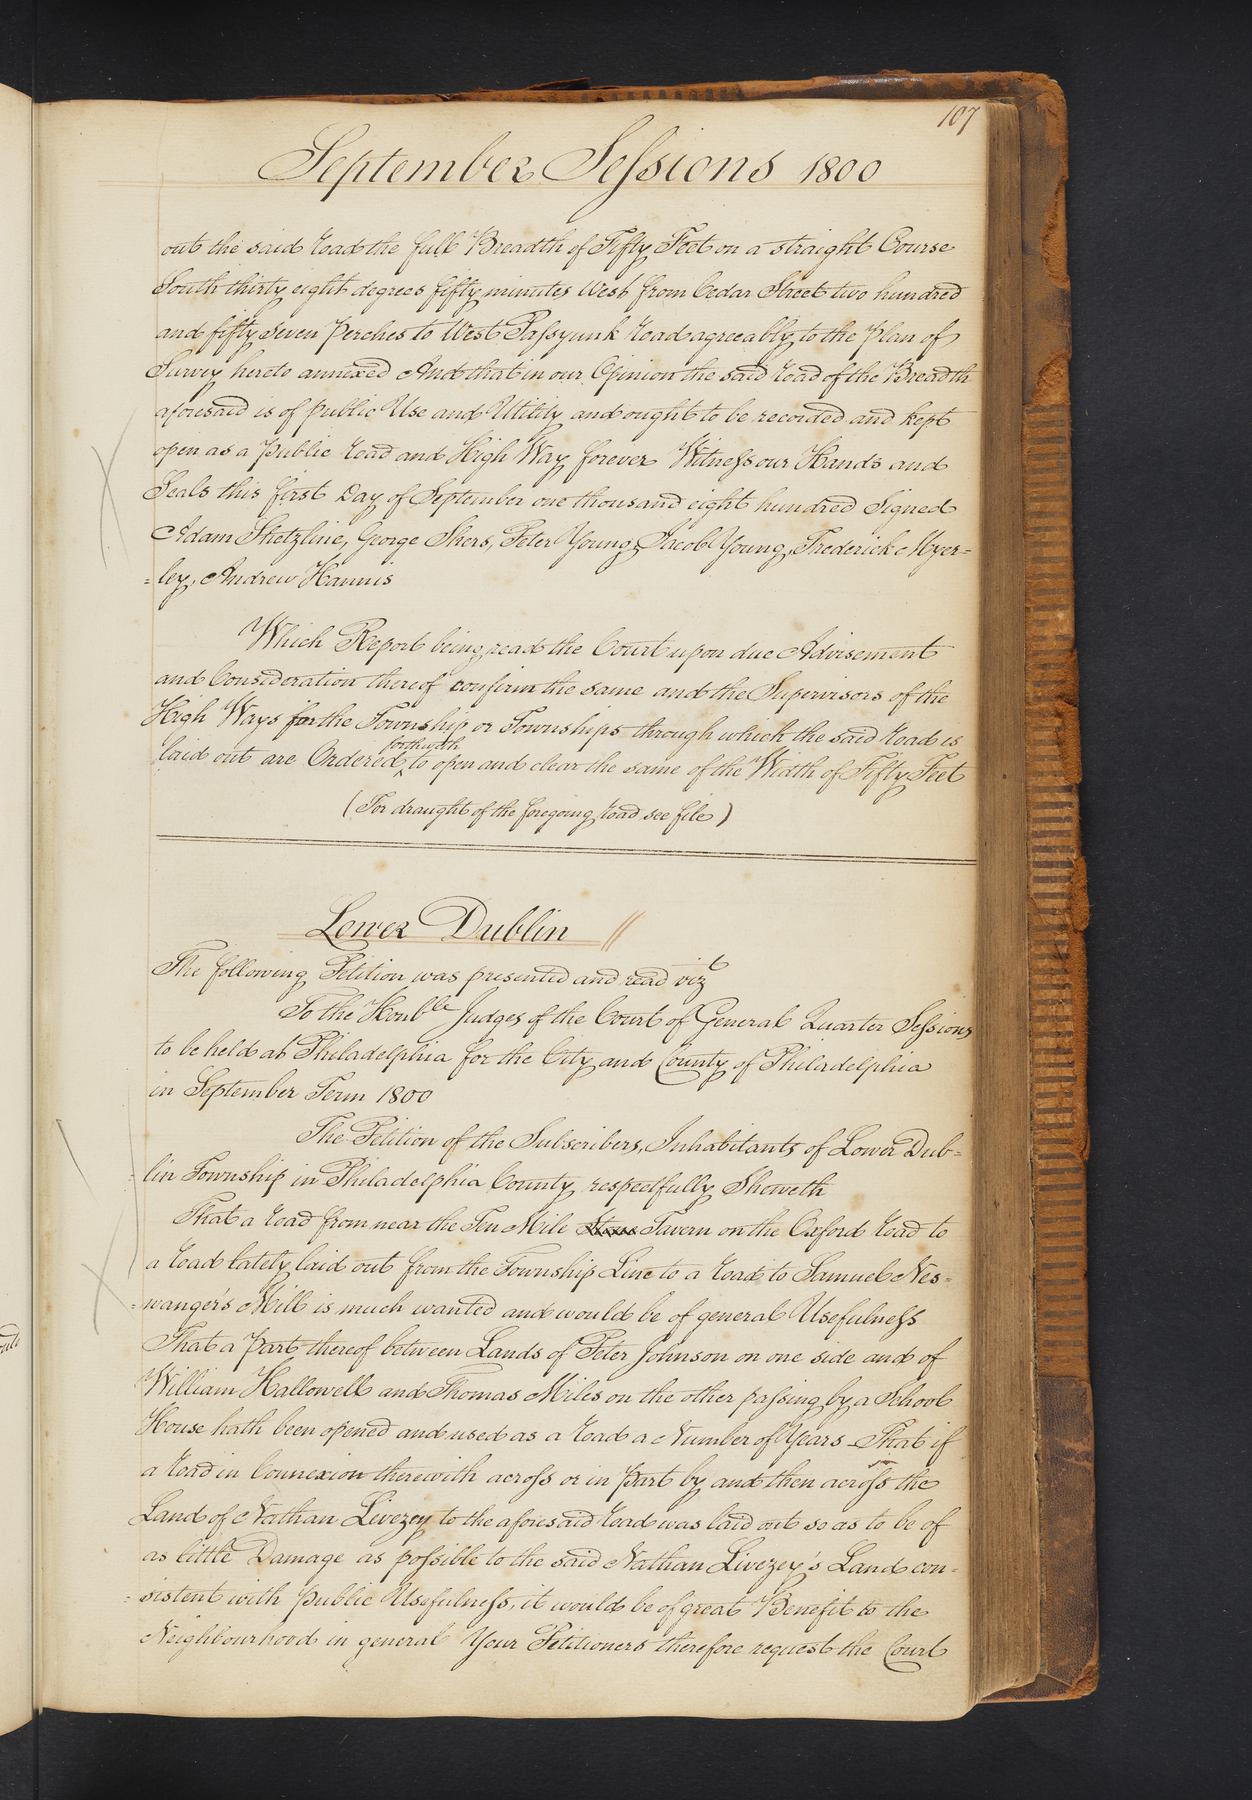 107
September Sessions 1800
out the said road the full Breadth of Fifty Feet on a straight Course
South thirty eight degrees fifty minutes West from Cedar Street two hundred
and fifty seven perches to West Passyunk road agreeably to the plan of
Survey hereto annexed And that in our Opinion the said road of the Breadth
aforesaid is of public Use and Utility and ought to be recorded and kept
open as a public road and High Way forever Witness our Hands and
Seals this first Day of September one thousand eight hundred Signed
Adam Stretzline, George Skers, Peter Young, Jacob Young, Frederick Myer=
=ley, Andrew Hannis
Which Report being read the Court upon due Advisement
and Consideration thereof confirm the same and the Supervisors of the
High Ways for the Township or Townships through which the said road is
forthwith
laid out are Ordered ‸ to open and clear the same of the Width of Fifty Feet
(For draught of the foregoing road see file)
Lower Dublin //
The following Petition was presented and read vizt
To the Honble Judges of the Court of General Quarter Sessions
to be held at Philadelphia for the City and County of Philadelphia
in September Term 1800
The Petition of the Subscribers, Inhabitants of Lower Dub=
=lin Township in Philadelphia County respectfully Sheweth
That a road from near the Ten Mile Stone Tavern on the Oxford road to
a road lately laid out from the Township Line to a road to Samuel Nes=
=wanger's Mill is much wanted and would be of general Usefulness
That a part thereof between Lands of Peter Johnson on one side and of
William Hallowell and Thomas Miles on the other passing by a School
House hath been opened and used as a road a Number of Years - That if
a road in Connexion therewith across or in part by and then across the
Land of Nathan Livezey to the aforesaid road was laid out so as to be of
as little Damage as possible to the said Nathan Livezey's Land con=
=sistent with public Usefulness, it would be of great Benefit to the
Neighbourhood in general Your Petitioners therefore request the Court